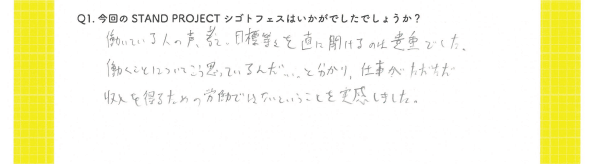 Q1. 今回の STAND PROJECT シゴトフェスはいかがでしたでしょうか？
働いている人の声、考え。目標等々を直に聞けるのは貴重でした。
働くことについてこう思っているんだ...と分かり、仕事がただただ
収入を得るための労働ではないということを実感しました。